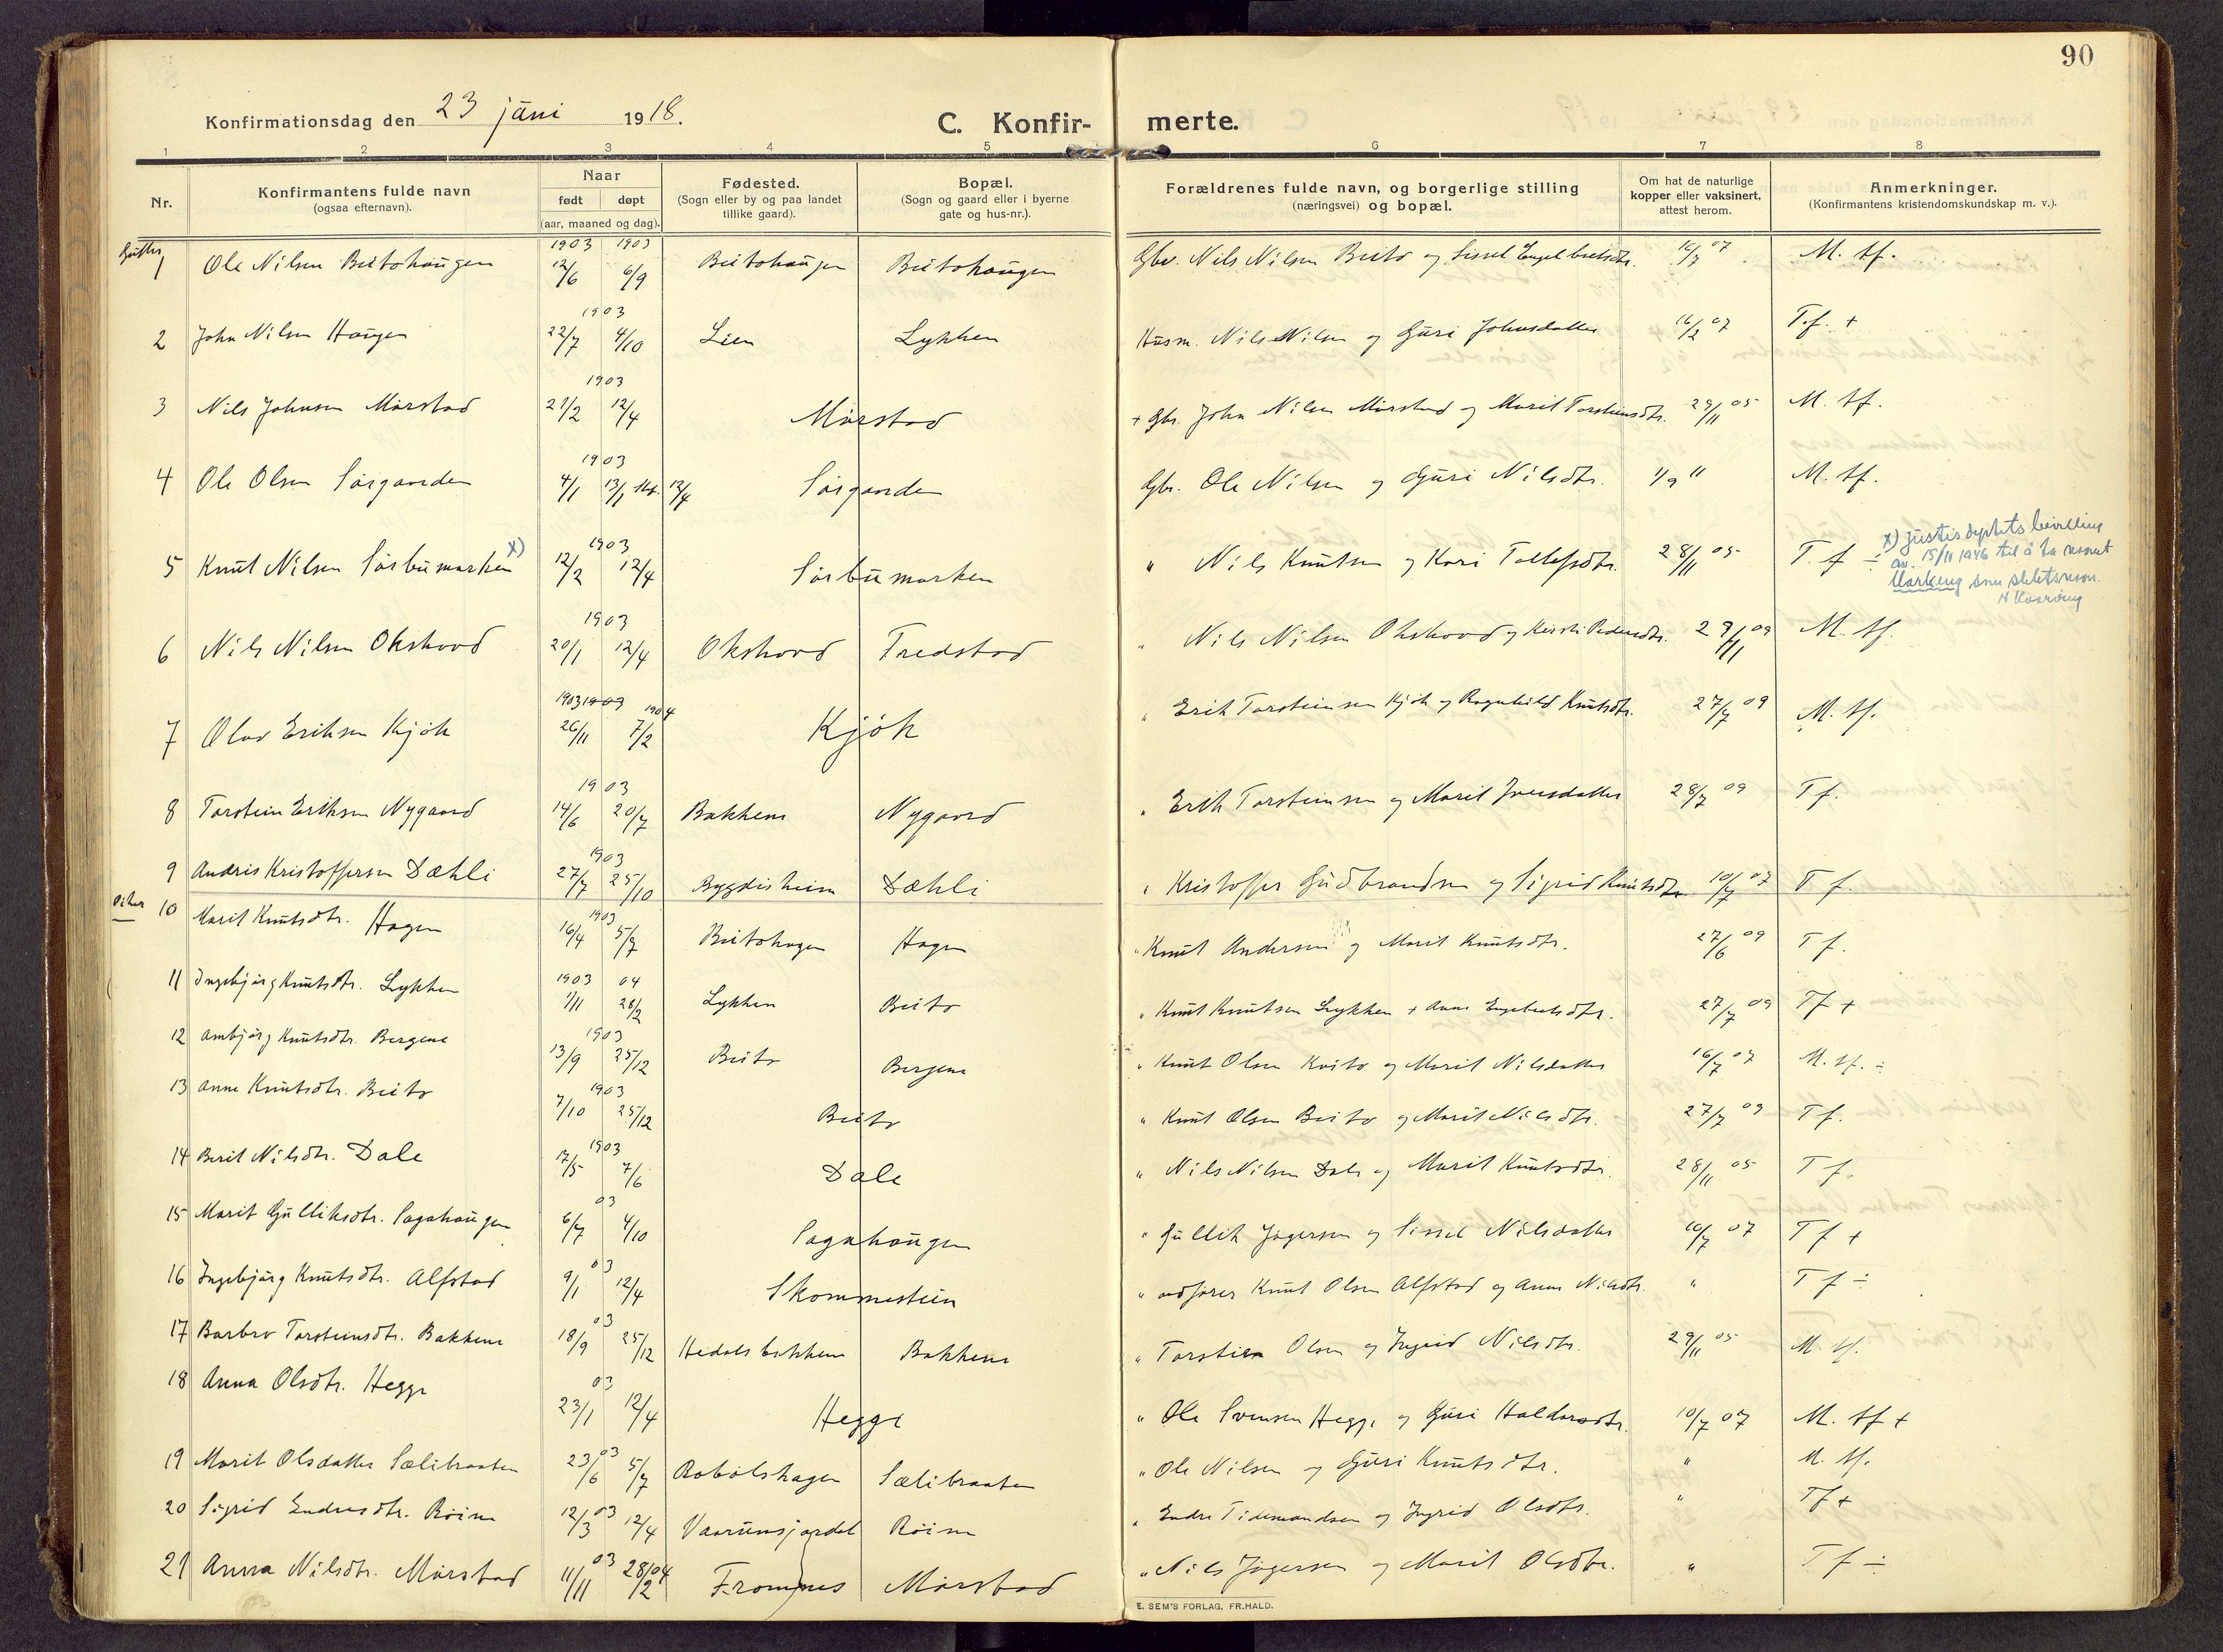 90
Konfirmationsdag den 23 juni 1918.
C. Konfir- merte.
1 2 3 4 5 6 7 8
Nr.
Konfirmantens fulde navn
(ogsaa efternavn).
Naar
født døpt
(aar, maaned og dag).
Fødested.
(Sogn eller by og paa landet
tillike gaard).
Bopæl.
(Sogn og gaard eller i byerne
gate og hus-nr.).
Forældrenes fulde navn, og borgerlige stilling
(næringsvei) og bopæl.
Om hat de naturlige
kopper eller vaksinert,
attest herom.
Anmerkninger.
(Konfirmantens kristendomskundskap m. v.).
Gutter
1903 1903
1 Ole Nilsen Beitohaugen 12/6 6/9 Beitohaugen Beitohaugen Gbr. Nils Nilsen Beito og Sissel Engelbretsdtr. 07 M. tf.
1903
2 John Nilsen Haugen 22/7 4/10 Lien Lykken Husm. Nils Nilsen og Guri Johnsdatter 16/2 07 T.f. +
1903
3 Nils Johnsen Mørstad 21/2 12/4 Mørstad + Gbr. John Nilsen Mørstad og Marit Torsteinsdtr. 29/11 05 M. tf.
1903
4 Ole Olsen Sørgaarden 4/1 13/1 12/4 Sørgaarden Gbr. Ole Nilsen og Guri Nilsdtr. 1/9 " M. tf.
1903
5 Knut Nilsen Sørbumarken x) 12/2 12/4 Sørbumarken " Nils Knutsen og Kari Tollefsdtr. 28/11 05 T. f ÷
x) Justisdeptets bevilling
av 15/11 1946 til å ta navnet
som slektsnavn.
1903
6 Nils Nilsen Okshovd 20/1 12/4 Okshovd Fredstad " Nils Nilsen Okshovd og Pedersdtr. 29/11 09 M. tf.
1903 1903 1904
7 Olav Eriksen Kjøk 26/11 7/2 Kjøk " Erik Torsteinsen Kjøk og Ragnhild Knutsdtr. 27/7 09 M. tf.
1903
8 Torstein Eriksen Nygaard 14/6 20/7 Bakkene Nygaard " Erik Torsteinsen og Marit Iversdatter 28/7 09 T f.
1903
9 Andris Kristoffersen Dæhli 27/7 25/10 Bygdisheim Dæhli " Kristoffer Gudbrandsen og Sigrid Knutsdtr. 10/7 07 T f.
Piker
1903
10 Marit Knutsdtr. Hagen 16/4 5/7 Beitohagen Hagen " Knut Andersen og Marit Knutsdtr. 27/6 09 T f.
1903 04
11 Ingebjørg Knutsdtr. Lykken 1/11 28/2 Lykken Beito " Knut Knutsen Lykken + Anne Engebretsdtr. 27/7 09 Tf +
1903
12 Ambjørg Knutsdtr. Bergene 13/9 25/12 Beito Bergene " Knut Olsen og Marit Nilsdatter 16/7 07 M. tf. ÷
1903
13 Anne Knutsdtr. Beito 7/10 25/12 Beito " Knut Olsen Beito og Marit Nilsdtr. 27/7 09 T f.
1903
14 Berit Nilsdtr. Dale 17/5 7/6 Dale " Nils Nilsen Dale og Marit Knutsdtr. 28/11 05 T f.
03
15 Marit Gulliksdtr. Sagahaugen 6/7 4/10 Sagahaugen " Gullik Jøgersen og Sissel Nilsdatter 10/7 07 T f +
03
16 Ingebjørg Knutsdtr. Alfstad 9/1 12/4 Skammestein " ordfører Knut Olsen Alfstad og Anne Nilsdtr. " T f ÷
03
17 Barbro Torsteinsdtr. Bakkene 18/9 25/12 Hedalsbakkene Bakkene " Torstein Olsen og Ingrid Nilsdtr. 29/11 05 M. tf.
03
18 Anna Olsdtr. Hegge 23/1 12/4 Hegge " Ole Svensen Hegge og Guri Haldorsdtr. 10/7 07 M. tf +
03
19 Marit Olsdatter Sælibraaten 23/6 5/7 Robølshagen Sælibraaten " Ole Nilsen og Guri Knutsdtr. " M. tf.
03
20 Sigrid Endresdtr. Røine 12/3 12/4 Røine " Endre Tidemandsen og Ingrid Olsdtr. " Tf +
03
21 Anna Nilsdtr. Mørstad 11/11 28/2 04 Fromnes Mørstad " Nils Jøgersen og Marit Olsdtr. " T f ÷
E. SEM'S FORLAG, FR.HALD.